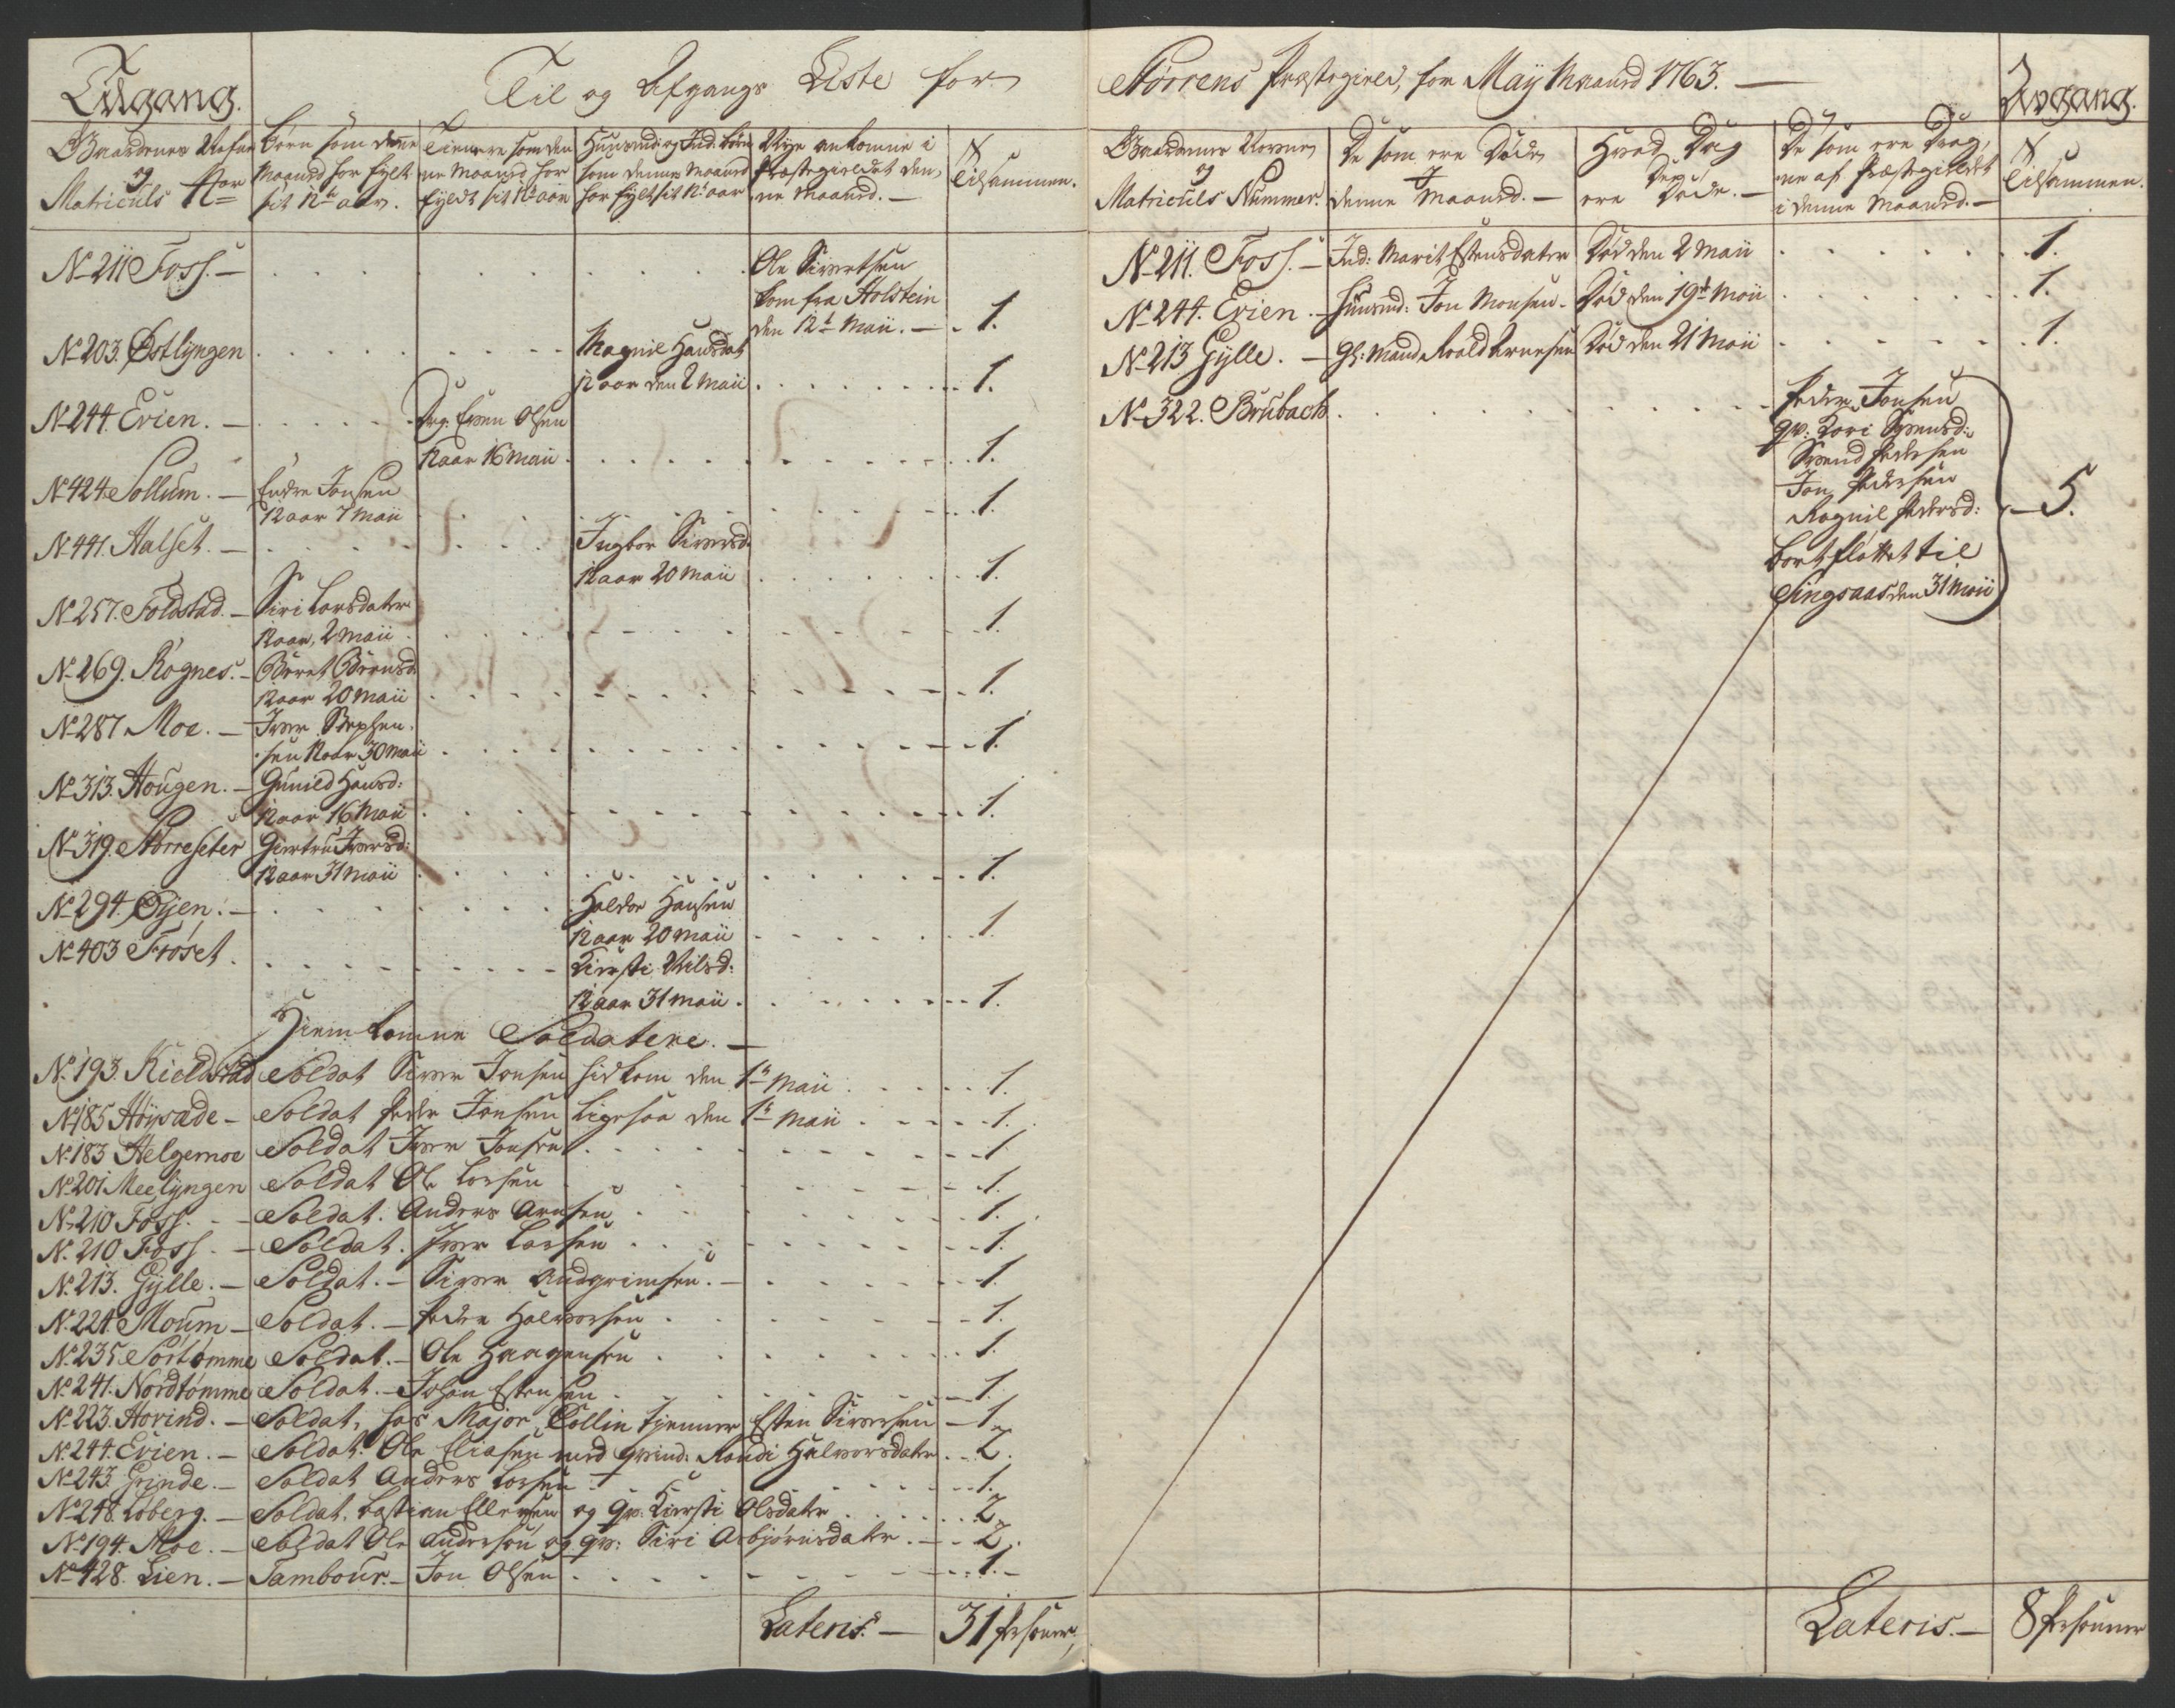 Tilgang.
Til og Afgangs Liste for
Gaardenes Nafne
og
Matriculs Nor
Børn som denne
Maaned har fylt
sit 12te aar.
Tienere som den
ne Maaned har
fyldt sit 12te aar
Huusmænds og Ind. børn
som denne Maaned
har fylt sit 12te aar
Nye ankomne i
Præstegieldet den
ne Maaned. —
Tilsammen.
No 211 Foss. —
Ole Sivertsen
kom fra Holstein
den 12te Maii. — 1.
No 203. Østlyngen
Magnil Hansdat
12 aar den 2 Maii 1.
No 244. Evien. —
Drg. Even Olsen
12 aar 16 Maii 1.
No 424. Sollum. — Endre Jonsen
12 aar 7 Maii 1.
No 441. Halset. —
Ingbor Siversd.
12 aar 20 Maii 1.
No 257. Foldstad. — Siri Larsdater
12 aar, 2 Maii 1.
No 269. Rognes. — Beret Børensd
12 aar 20 Maii 1.
No 287 Moe. — Iver Stephen
sen 12 aar 30 Maii 1.
No 313. Hougen. — Gunild Hansd:
12 aar 16 Maii 1.
No 319. Størreseter Giertru Iversd:
12 aar 31 Maii 1.
No 294. Øyen. — Haldor Hansen
12 aar 20 Maii 1.
No 403 Frøset.
Kiersti Nilsd:
12 aar 31 Maii 1.
Hiem komne Soldatere. —
No 193. Kieldstad Soldat Siver Jonsen hid kom den 1te Maii 1.
No 185 Høysade — Soldat Peder Jonsen ligesaa den 1te Maii 1.
No 183 Helgemoe Soldat Iver Jonsen 1
No 201 Meelyngen Soldat Ole Larsen 1.
No 210 Foss. — Soldat. Anders Arnsen 1.
No 210 Foss. — Soldat. Iver Larsen 1.
No 213. Gylle. — Soldat. — Siver Audgrimsen. — 1
No 224. Moum — Soldat. — Peder Halvorsen 1.
No 235 Sørtømme Soldat. — Ole Haagensen 1.
No 241. Nordtømme Soldat. — Johan Estensen 1.
No 223. Hovind. — Soldat, hos Major Collin tjenner Esten Siversen — 1.
No 244. Evien. — Soldat. Ole Eliasen med qvind. Randi Halvorsdater 2.
No 243. Grinde. — Soldat Anders Larsen 1.
No 248. Løberg. — Soldat. Bastian Ellevsen og qv: Kiersti Olsdater 2.
No 194. Moe. — Soldat Ole Andersen og qv: Siri Asbjørnsdater. — 2.
No 428. Lien. — Tambour. — Jon Olsen 1. —
Lateris. — 31 Personer
Størrens Præstegield, for Maÿ Maaned 1763. —
Avgang.
Gaardenes Navne
og
Matriculs Nummer.
De som ere Døde
I
denne Maaned. —
Hvad Dag
Der
ere Døde. —
De som ere Drag,
ne af Præstegieldet
i denne Maaned. —
Tilsammen.
No 211. Foss. — Ind: Marit Estensdater Død den 2 Maii 1.
No 244. Evien. — Huusmd: Jon Monsen. Død den 19de Maii 1.
No 213 Gylle. — Gl: Mand Roald Arnesen Død den 21 Maii 1.
No 322. Brubach.
Peder Jonsen
qv: Kari Svensd:
Svend Pedersen
Jon Pedersen
Ragnil Pedersd: — 5.
bort fløttet til
Singsaas den 31 Maii
Lateris. — 8 Personner